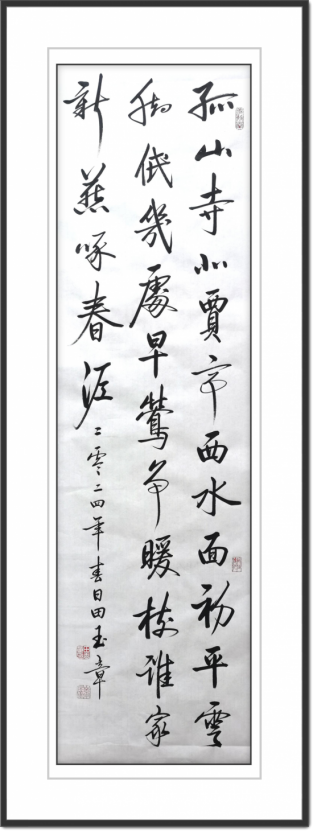 孤山寺北賈亭西水面初平雲
脚低幾處早鶯争暖樹誰家
新燕啄春泥
二零二四年春日田玉章